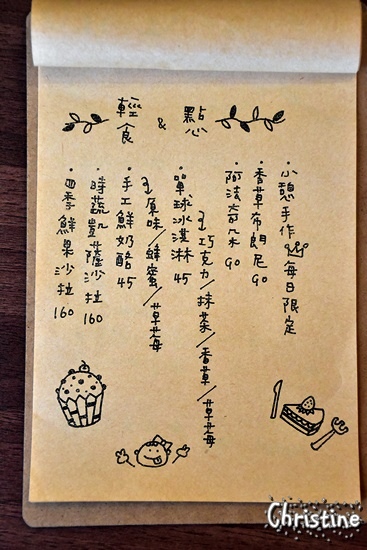 輕食 & 點心
・小憩手作 每日限定
・香草布朗尼 90
・阿法奇朵 90
巧克力/抹茶/香草/草莓
・單球冰淇淋 45
原味/蜂蜜/草莓
・手工鮮奶酪 45
・時蔬凱薩沙拉 160
・四季鮮果沙拉 160
Christine